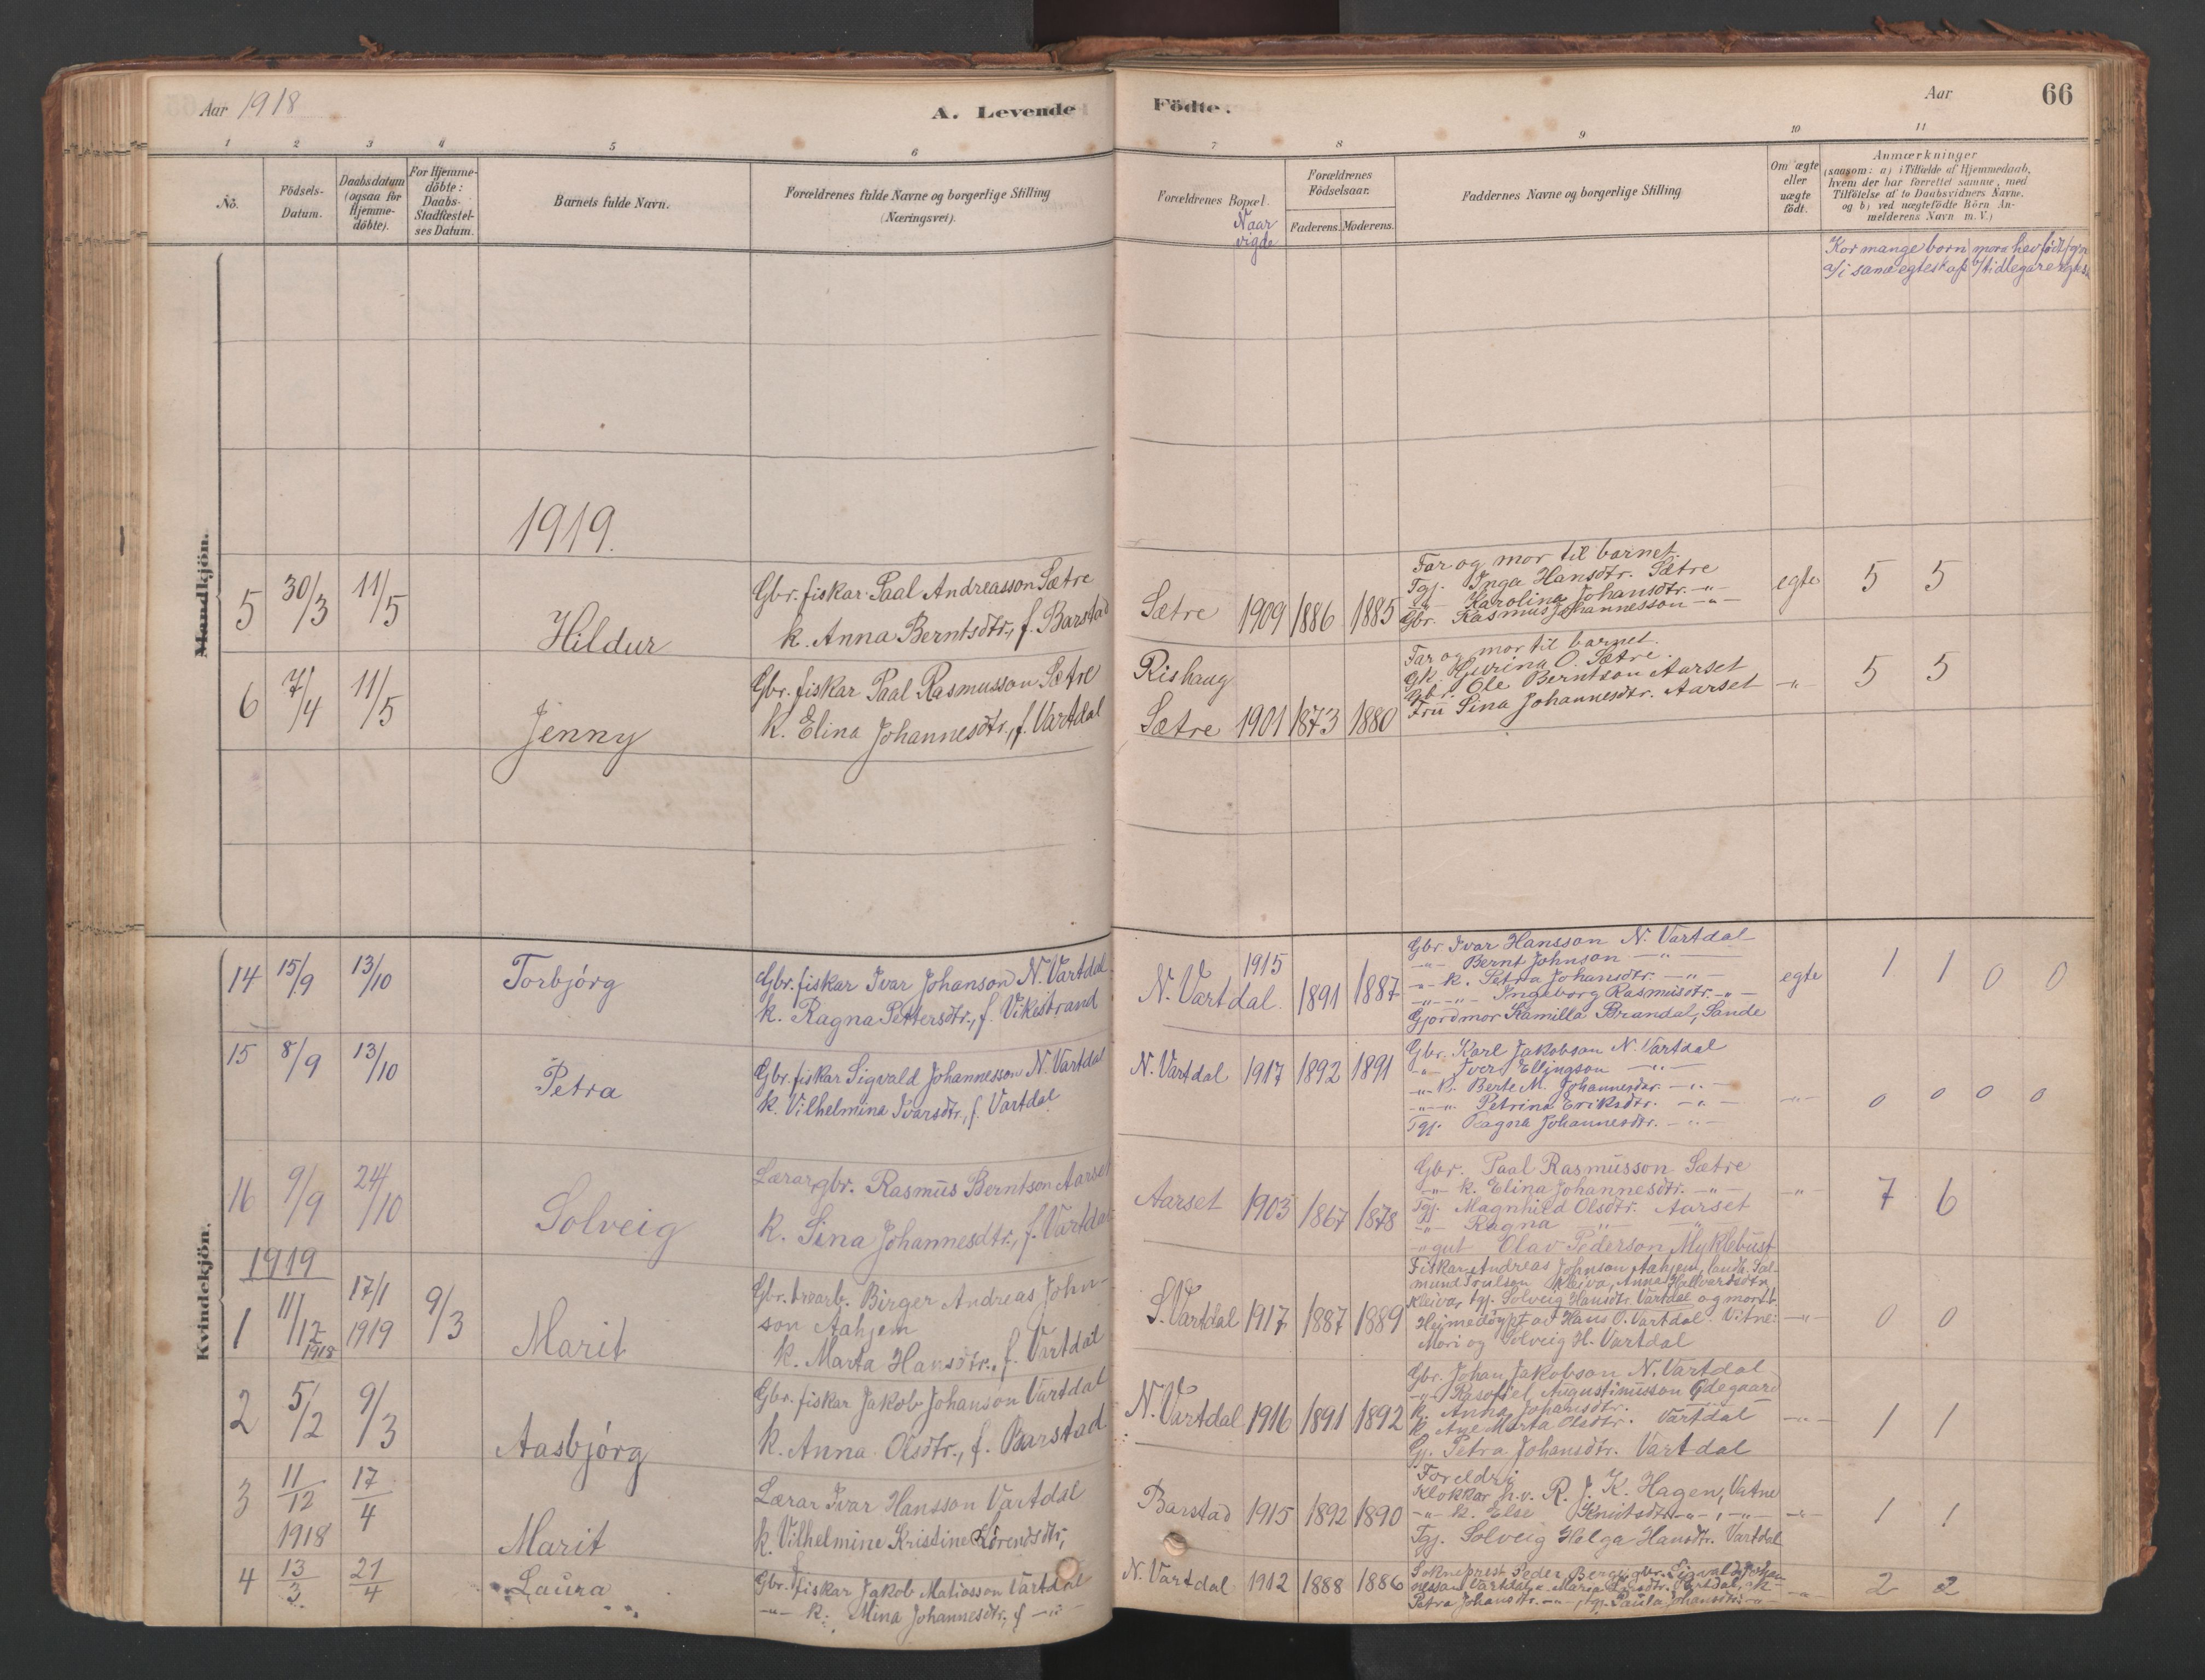 Aar 1918
A. Levende Födte.
Aar
66
1 2 3 4 5 6 7 8 9 10 11
No.
Födsels-Datum.
Daabsdatum (ogsaa for Hjemme-döbte).
For Hjemme-döbte: Daabs-Stadfæstel-ses Datum.
Barnets fulde Navn.
Forældrenes fulde Navne og borgerlige Stilling (Næringsvei).
Forældrenes Bopæl.
Naar vigde
Forældrenes Födselsaar.
Faderens. Moderens.
Faddernes Navne og borgerlige Stilling
Om ægte eller uægte födt.
Anmærkninger
(saasom: a) i Tilfælde af Hjemmedaab,
hvem der har forrettet samme, med
Tilföielse af to Daabsvidners Navne.
og b) ved uægtefödte Börn An-
melderens Navn m. V.)
Kor mange born mora hev født
a/ i sama egteskap b/ tidlegare
Mandkjön.
1919.
5 30/3 11/5 Hildur
Gbr. fiskar Paal Andreasson Sætre
k. Anna Berntsdtr., f. Barstad
Sætre 1909 1886 1885
Far og mor til barnet.
Tgj. Inga Hansdtr. Sætre
-"- Karolina Johansdtr. -"-
Gbr. Rasmus Johannesson -"-
egte 5 5
6 7/4 11/5 Jenny
Gbr. fiskar Paal Rasmusson Sætre
k. Elina Johannesdtr., f. Vartdal
Rishaug
Sætre 1901 1873 1880
Far og mor til barnet.
Gk. Gurina O. Sætre.
Gbr. Ole Berntson Aarset
Fru Sina Johannesdtr. Aarset
-"- 5 5
Kvindekjön.
14 15/9 13/10 Torbjórg
Gbr. fiskar Ivar Johanson N. Vartdal
k. Ragna Pettersdtr., f. Vikestrand
N. Vartdal. 1915 1891 1887
Gbr Ivar Hansson N. Vartdal
-"- Bernt Johnson -"-
-"- k. Petra Johansdtr. -"-
-"- -"- Ingeborg Rasmusdtr. -"-
Gjordmor Kamilla Brandal, Sande
egte 1 1 0 0
15 8/9 13/10 Petra
Gbr. fiskar Sigvald Johannesson N. Vartdal
k. Vilhelmina Ivarsdtr., f. Vartdal
N. Vartdal 1917 1892 1891
Gbr. Karl Jakobson N. Vartdal
-"- Iver Ellingson -"-
-"- k. Berte M. Johannesdtr. -"-
-"- -"- Petrina Eriksdtr. -"-
Tgj. Ragna Johannesdtr. -"-
-"- 0 0 0 0
16 9/9 24/10 Solveig
Lærar, gbr. Rasmus Berntson Aarset
k. Sina Johannesdtr., f. Vartdal
Aarset 1903 1867 1878
Gbr. Paal Rasmusson Sætre
-"- k. Elina Johannesdtr. -"-
Tgj. Magnhild Olsdtr. Aarset
-"- Ragna -"- -"-
-"- gut Olav Pederson Myklebust
-"- 7 6
1919
1 11/12 1918 17/1 1919 9/3 Marit
Gbr. trearb. Birger Andreas John-
son Aahjem
k. Marta Hansdtr., f. Vartdal
S. Vartdal 1917 1887 1889
Fiskar Andreas Johnson Aahjem, landh. Sal-
mund Trulson Kleiva, Anna Hallvardsdtr.
Kleiva, tgj. Solveig Hansdtr. Vartdal og mor t. b.
Heimedöypt av Hans O. Vartdal. Vitne:
Mori og Solveig H. Vartdal
-"- 0 0
2 5/2 9/3 Aasbjórg
Gbr. fiskar Jakob Johanson Vartdal
k. Anna Olsdtr., f. Barstad
N. Vartdal 1916 1891 1892
Gbr. Johan Jakobson N. Vartdal
-"- Rasmus Augustinusson Ødegaard
k. Anna Johansdtr.
k. Ane Marta Olsdtr. Vartdal
Gj. Petra Johansdtr. Vartdal
-"- 1 1
3 11/12 1918 17/4 Marit
Lærar Ivar Hansson Vartdal
k. Vilhelmine Kristine Lorensdtr,
Barstad 1915 1892 1890
Foreldri
Klokkar h.v. R. J. K. Hagen, Vatne
-"- k. Else Knutsdtr. -"-, -"-
Tgj. Solveig Helga Hansdtr. Vartdal
-"- 1 1
4 13/3 21/4 Laura
Gbr. fiskar Jakob Matiasson Vartdal
-"- k. Mina Johannesdtr., f -"-
N. Vartdal 1912 1888 1886
Sokneprest Peder Berge, gbr. Sigvald Johan-
nesson Vartdal, Maria
Petra Johansdtr. -"-, tgj. Paula Johansdtr. -"-
-"- 2 2